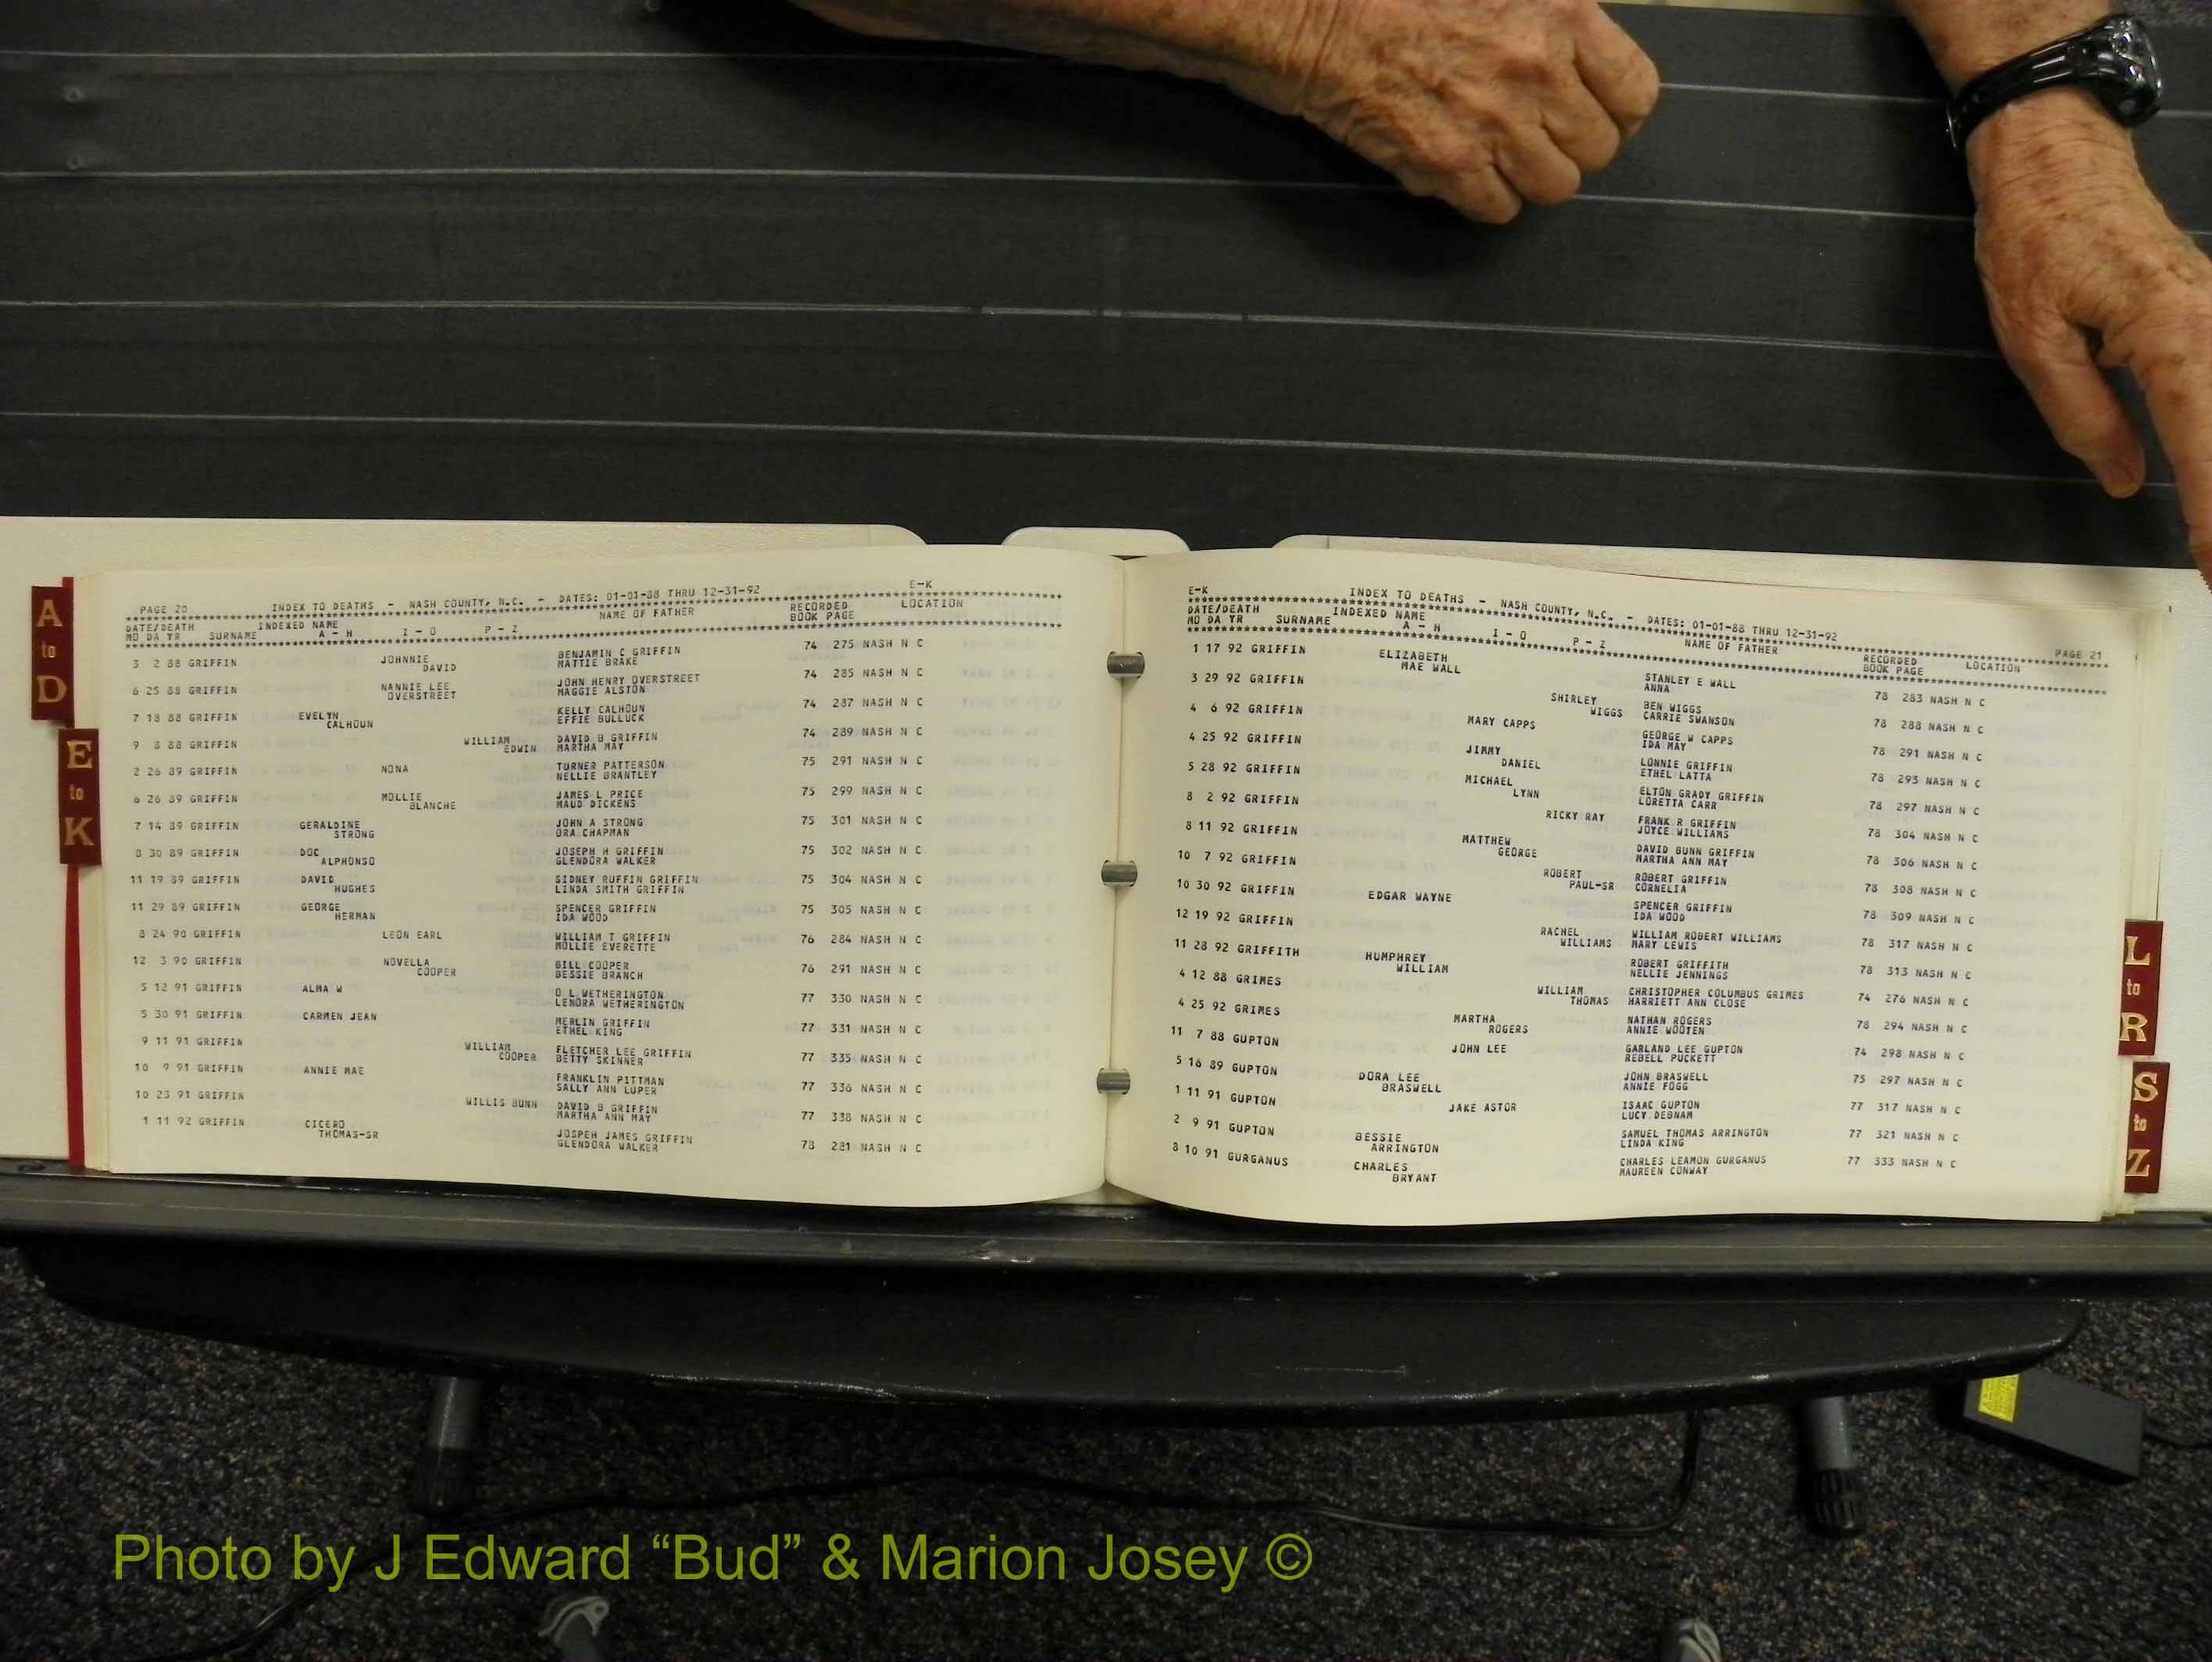 A
to
D
E
to
K
PAGE 20 INDEX TO DEATHS - NASH COUNTY, N.C. - DATES: 01-01-88 THRU 12-31-92 E-K
DATE/DEATH INDEXED NAME NAME OF FATHER RECORDED LOCATION
MO DA YR SURNAME A - H I - O P - Z BOOK PAGE
3 2 88 GRIFFIN JOHNNIE BENJAMIN C GRIFFIN 74 275 NASH N C
DAVID MATTIE BRAKE
6 25 88 GRIFFIN NANNIE LEE JOHN HENRY OVERSTREET 74 285 NASH N C
OVERSTREET MAGGIE ALSTON
7 18 88 GRIFFIN EVELYN KELLY CALHOUN 74 287 NASH N C
CALHOUN EFFIE BULLUCK
9 8 88 GRIFFIN WILLIAM DAVID B GRIFFIN 74 289 NASH N C
EDWIN MARTHA MAY
2 26 89 GRIFFIN NONA TURNER PATTERSON 75 291 NASH N C
NELLIE BRANTLEY
6 26 89 GRIFFIN MOLLIE JAMES L PRICE 75 299 NASH N C
BLANCHE MAUD DICKENS
7 14 89 GRIFFIN GERALDINE JOHN A STRONG 75 301 NASH N C
STRONG ORA CHAPMAN
8 30 89 GRIFFIN DOC JOSEPH H GRIFFIN 75 302 NASH N C
ALPHONSO GLENDORA WALKER
11 19 89 GRIFFIN DAVID SIDNEY RUFFIN GRIFFIN 75 304 NASH N C
HUGHES LINDA SMITH GRIFFIN
11 29 89 GRIFFIN GEORGE SPENCER GRIFFIN 75 305 NASH N C
HERMAN IDA WOOD
8 24 90 GRIFFIN LEON EARL WILLIAM T GRIFFIN 76 284 NASH N C
MOLLIE EVERETTE
12 3 90 GRIFFIN NOVELLA BILL COOPER 76 291 NASH N C
COOPER BESSIE BRANCH
5 12 91 GRIFFIN ALMA W O L WETHERINGTON 77 330 NASH N C
LENORA WETHERINGTON
5 30 91 GRIFFIN CARMEN JEAN MERLIN GRIFFIN 77 331 NASH N C
ETHEL KING
9 11 91 GRIFFIN WILLIAM FLETCHER LEE GRIFFIN 77 335 NASH N C
COOPER BETTY SKINNER
10 9 91 GRIFFIN ANNIE MAE FRANKLIN PITTMAN 77 336 NASH N C
SALLY ANN LUPER
10 23 91 GRIFFIN WILLIS BUNN DAVID B GRIFFIN 77 338 NASH N C
MARTHA ANN MAY
1 11 92 GRIFFIN CICERO JOSPEH JAMES GRIFFIN 78 281 NASH N C
THOMAS-SR GLENDORA WALKER
E-K INDEX TO DEATHS - NASH COUNTY, N.C. - DATES: 01-01-88 THRU 12-31-92 PAGE 21
DATE/DEATH INDEXED NAME NAME OF FATHER RECORDED LOCATION
MO DA YR SURNAME A - H I - O P - Z BOOK PAGE
1 17 92 GRIFFIN ELIZABETH STANLEY E WALL 78 283 NASH N C
MAE WALL ANNA
3 29 92 GRIFFIN SHIRLEY BEN WIGGS 78 288 NASH N C
WIGGS CARRIE SWANSON
4 6 92 GRIFFIN MARY CAPPS GEORGE W CAPPS 78 291 NASH N C
IDA MAY
4 25 92 GRIFFIN JIMMY LONNIE GRIFFIN 78 293 NASH N C
DANIEL ETHEL LATTA
5 28 92 GRIFFIN MICHAEL ELTON GRADY GRIFFIN 78 297 NASH N C
LYNN LORETTA CARR
8 2 92 GRIFFIN RICKY RAY FRANK R GRIFFIN 78 304 NASH N C
JOYCE WILLIAMS
8 11 92 GRIFFIN MATTHEW DAVID BUNN GRIFFIN 78 306 NASH N C
GEORGE MARTHA ANN MAY
10 7 92 GRIFFIN ROBERT ROBERT GRIFFIN 78 308 NASH N C
PAUL-SR CORNELIA
10 30 92 GRIFFIN EDGAR WAYNE SPENCER GRIFFIN 78 309 NASH N C
IDA WOOD
12 19 92 GRIFFIN RACHEL WILLIAM ROBERT WILLIAMS 78 317 NASH N C
WILLIAMS MARY LEWIS
11 28 92 GRIFFITH HUMPHREY ROBERT GRIFFITH 78 313 NASH N C
WILLIAM NELLIE JENNINGS
4 12 88 GRIMES WILLIAM CHRISTOPHER COLUMBUS GRIMES 74 276 NASH N C
THOMAS HARRIETT ANN CLOSE
4 25 92 GRIMES MARTHA NATHAN ROGERS 78 294 NASH N C
ROGERS ANNIE WOOTEN
11 7 88 GUPTON JOHN LEE GARLAND LEE GUPTON 74 298 NASH N C
REBELL PUCKETT
5 16 89 GUPTON DORA LEE JOHN BRASWELL 75 297 NASH N C
BRASWELL ANNIE FOGG
1 11 91 GUPTON JAKE ASTOR ISAAC GUPTON 77 317 NASH N C
LUCY DEBNAM
2 9 91 GUPTON BESSIE SAMUEL THOMAS ARRINGTON 77 321 NASH N C
ARRINGTON LINDA KING
8 10 91 GURGANUS CHARLES CHARLES LEAMON GURGANUS 77 333 NASH N C
BRYANT MAUREEN CONWAY
L
to
R
S
to
Z
Photo by J Edward “Bud” & Marion Josey ©